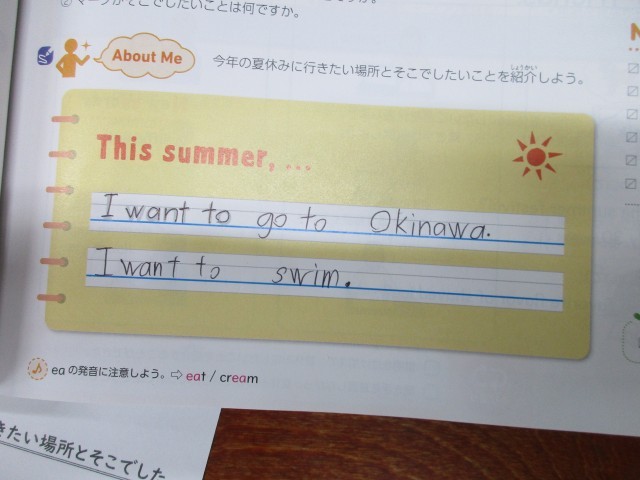 がそこでしたいことは何ですか。
About Me
今年の夏休みに行きたい場所とそこでしたいことを紹介しよう。
しょうかい
This summer, ...
I want to go to Okinawa.
I want to swim.
eaの発音に注意しよう。⇨ eat / cream
きたい場所とそこでした